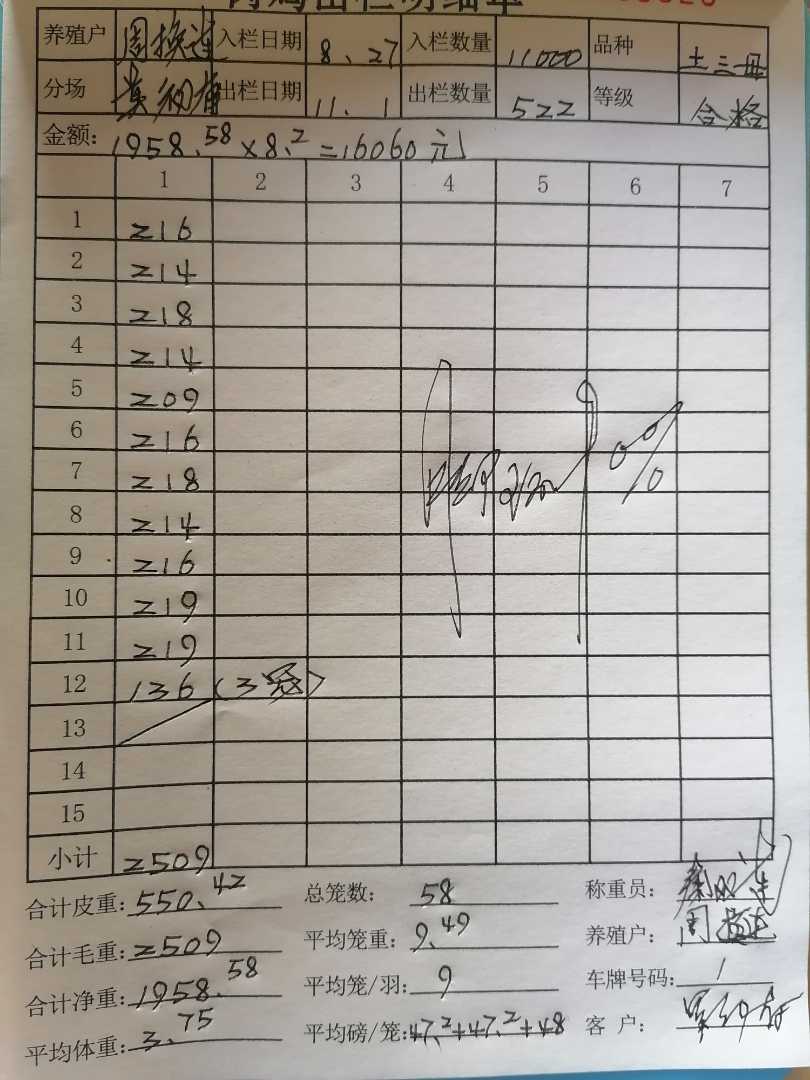 肉鸡出栏明细单
养殖户 周换连 入栏日期 8、27 入栏数量 11000 品种 土三毋
分场 出栏日期 11、1 出栏数量 522 等级 合格
金额: 1958.58×8.2=16060元
1 2 3 4 5 6 7
1 216
2 214
3 218
4 214
5 209
6 216
7 218
8 214
9 216
10 219
11 219
12 136 (3笼)
13
14
15
小计 2509
合计皮重: 550.42 总笼数: 58 称重员:
合计毛重: 2509 平均笼重: 9.49 养殖户: 周换连
合计净重: 1958.58 平均笼/羽: 9 车牌号码: /
平均体重: 3.75 平均磅/笼: 47.2+47.2+48 客 户: